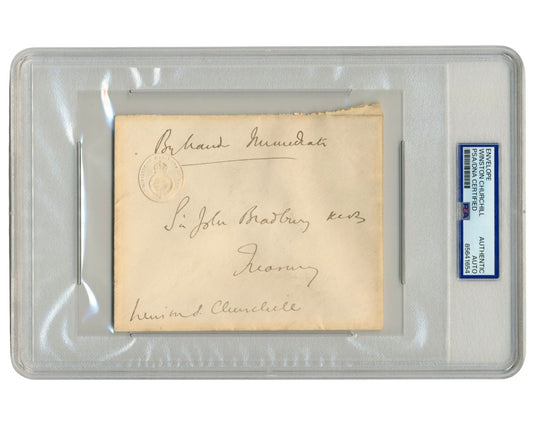 By hand Immediate
Sir John Bradbury KCB
Treasury
Winston S. Churchill
ENVELOPE
WINSTON CHURCHILL
PSA/DNA CERTIFIED
PSA
AUTHENTIC
AUTO
85641654